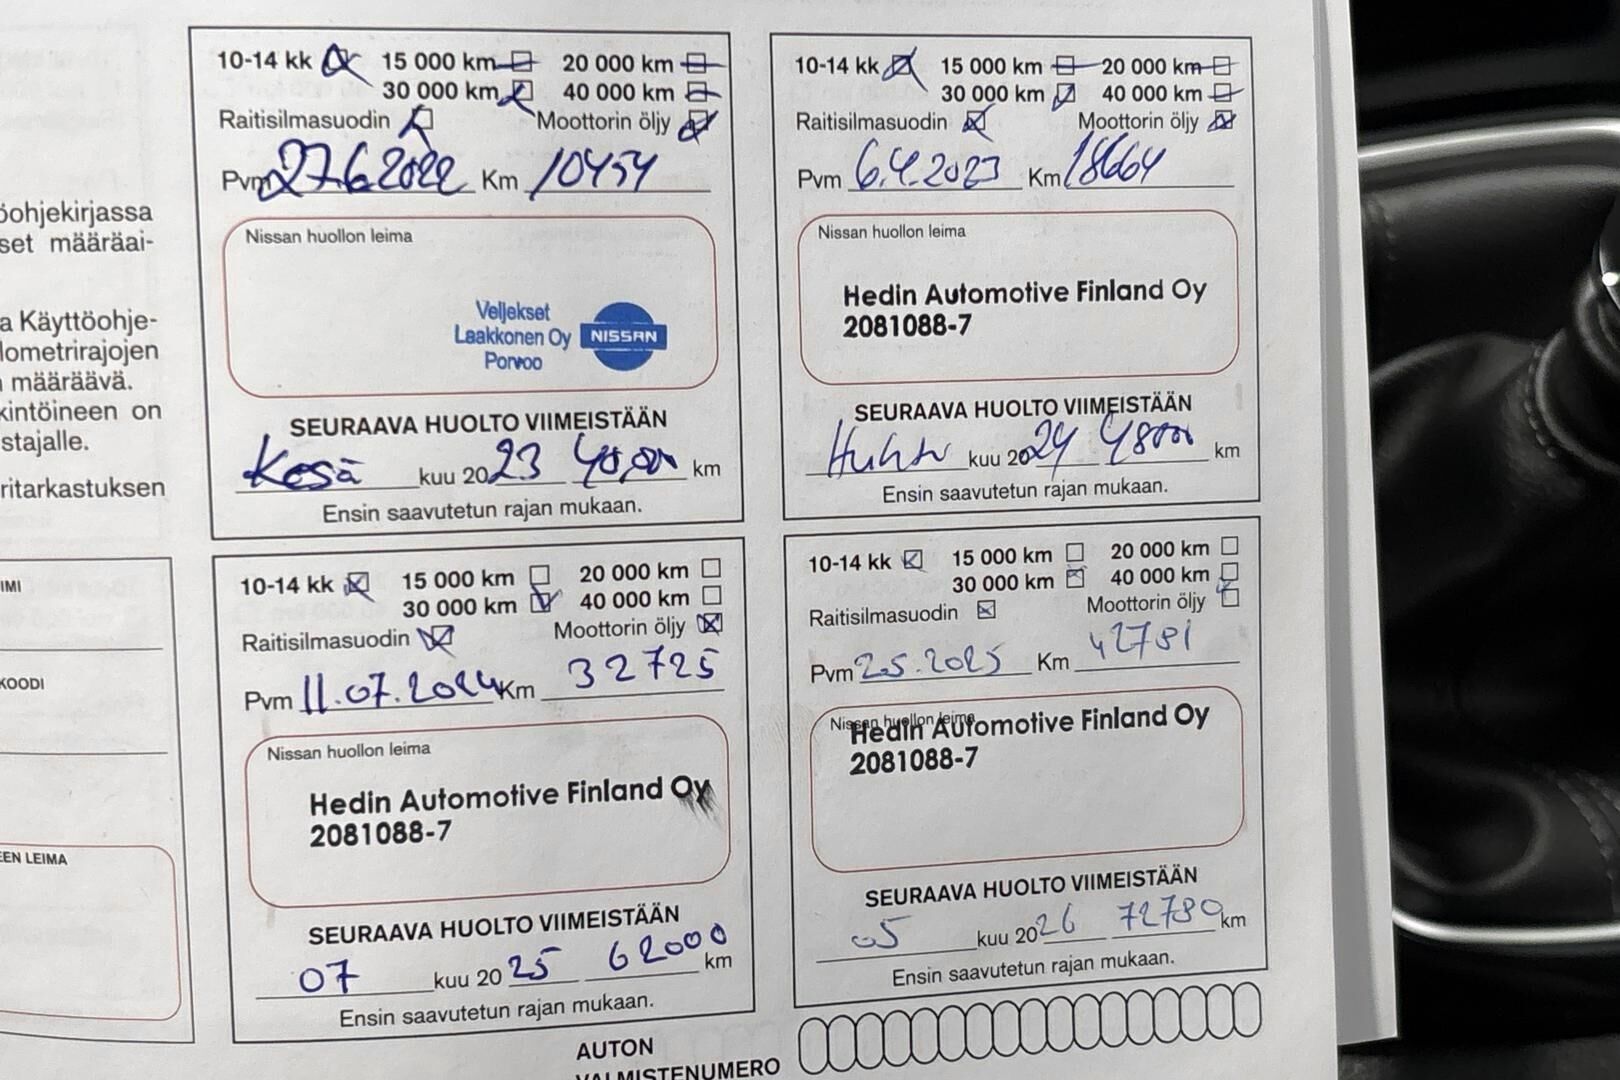 öohjekirjassa
set määräai-
a Käyttöohje-
lometrirajojen
määräävä.
kintöineen on
stajalle.
ritarkastuksen
IMI
KOODI
EEN LEIMA
10-14 kk 15 000 km 20 000 km
30 000 km 40 000 km
Raitisilmasuodin Moottorin öljy
Pvm 27.6.2022 Km 10454
Nissan huollon leima
Veljekset
Laakkonen Oy
Porvoo
NISSAN
SEURAAVA HUOLTO VIIMEISTÄÄN
Kesä kuu 2023 40,000 km
Ensin saavutetun rajan mukaan.
10-14 kk 15 000 km 20 000 km
30 000 km 40 000 km
Raitisilmasuodin Moottorin öljy
Pvm 6.4.2023 Km 18664
Nissan huollon leima
Hedin Automotive Finland Oy
2081088-7
SEURAAVA HUOLTO VIIMEISTÄÄN
Huhti kuu 2024 48000 km
Ensin saavutetun rajan mukaan.
10-14 kk 15 000 km 20 000 km
30 000 km 40 000 km
Raitisilmasuodin Moottorin öljy
Pvm 11.07.2024 Km 32725
Nissan huollon leima
Hedin Automotive Finland Oy
2081088-7
SEURAAVA HUOLTO VIIMEISTÄÄN
07 kuu 2025 62000 km
Ensin saavutetun rajan mukaan.
10-14 kk 15 000 km 20 000 km
30 000 km 40 000 km
Raitisilmasuodin Moottorin öljy
Pvm 2.5.2025 Km 42781
Nissan huollon leima
Hedin Automotive Finland Oy
2081088-7
SEURAAVA HUOLTO VIIMEISTÄÄN
05 kuu 2026 72780 km
Ensin saavutetun rajan mukaan.
AUTON
VALMISTENUMERO